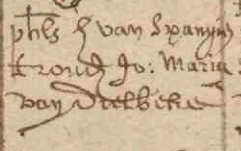 phls h van Spanyen
trouď Jo: Maria
van Dielbeke